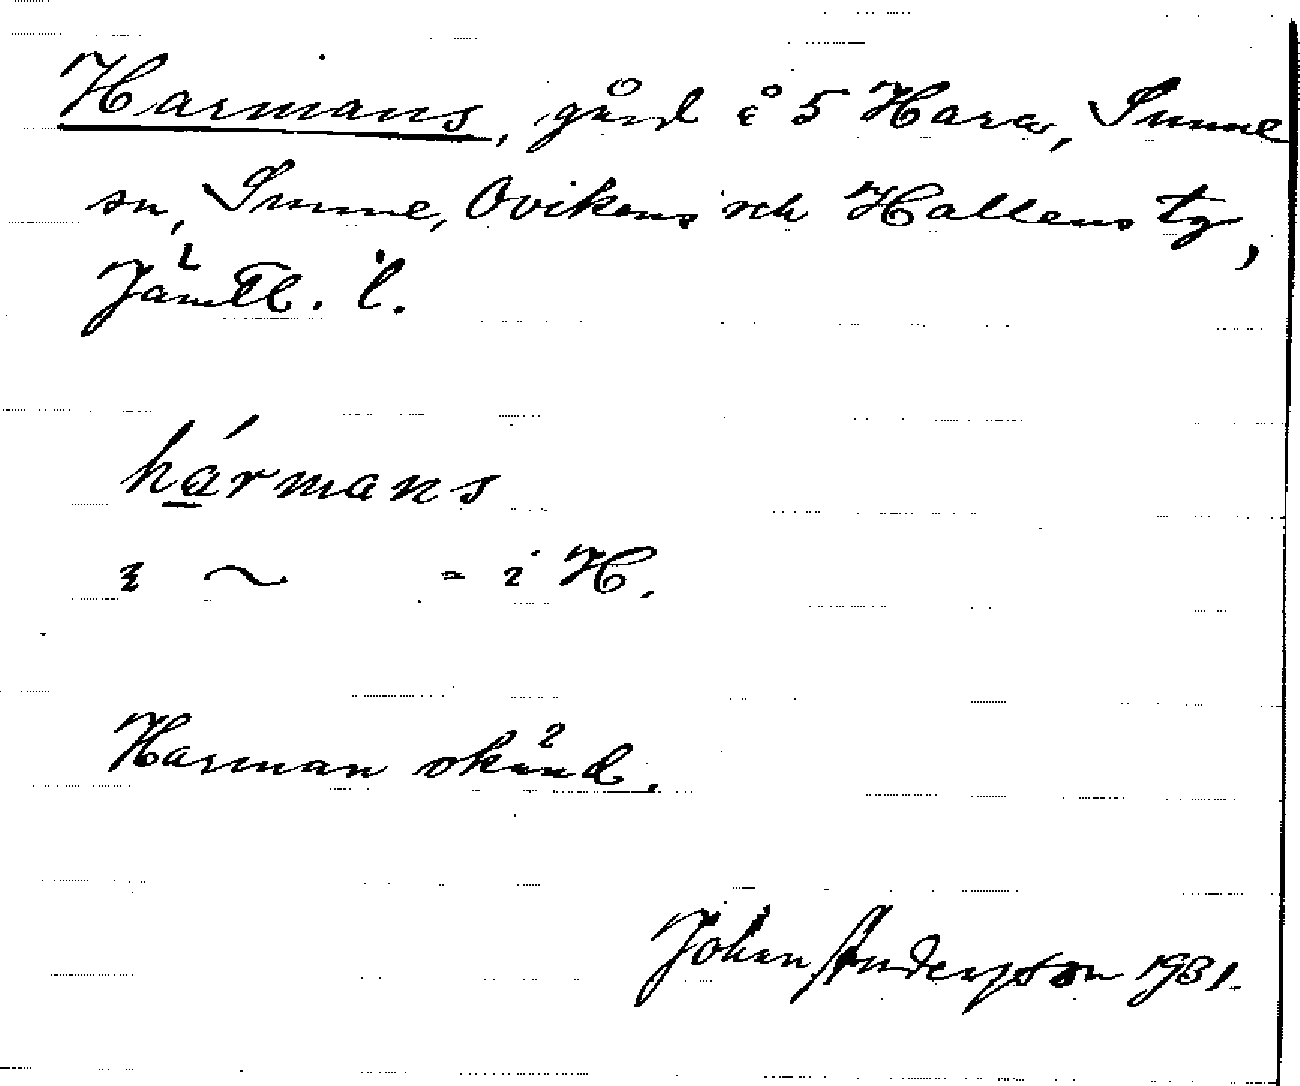 Harmans, gård å 5 Hara, Sunne
sn, Sunne, Ovikens och Hallens tg,
Jämtl. l.
hármans
~ - i H.
Harman okänd.
Johan Anderson 1931.